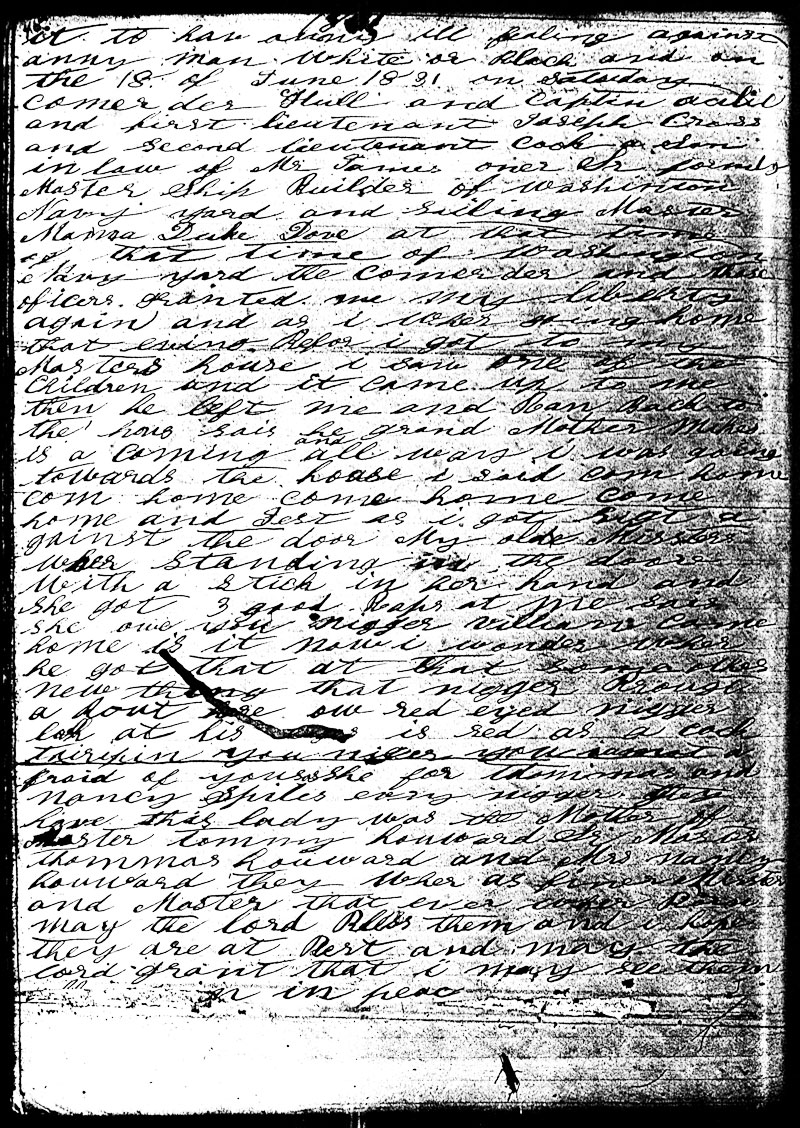 it to hav anny ill fealing against
anny man White or Black and on
the 18 of June 1831 on Satuday
Comerder Hull and Captin
and first lieutenant Joseph Cross
and Second lieutenant Cook a Son
in law of Mr James oner Sr formly
Master Ship Builder of Washinton
Navy yard and Sailing Master
Marma Duke Dove at that time
at that time of Washington
Navy yard the Comerder and these
oficers granted me my liberty
again and as i wher going home
that evning Befor i got to my
Masters house i saw one of the
Children and it came up to me
then he left me and Ran Back to
the hous sais he grand Mother
is a Coming and all wais i was goine
towards the house i said com home
com home come home come
home and Jest as i got Right a
gainst the door My olde Missers
wher Standing in the doore
With a Stick in her hand and
She got 3 good Raps at Me sais
she owe you nigger William Came
home is it now i wonder wher
he got that at that
new thing that nigger Brought
a bout here ow red eyed nigger
look at his eyes is red as a
you nigger you
fraid of youre she for thommas and
nancy Spiles evry nigger they
have this lady was the Mother of
Master tommy houward Sr Master
thommas houward and Mrs nancy
houward they wher as
and Master that ever wher Born
may the lord Bless them and i hope
they are at Rest and may the
lord grant that i may see them
in peac